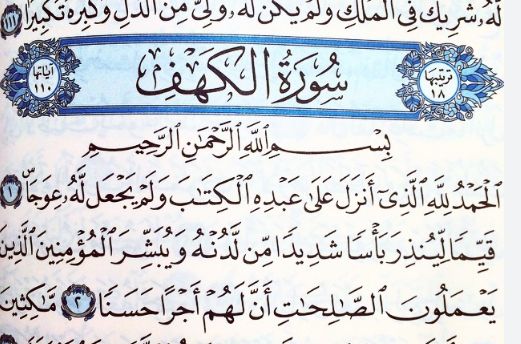 لَّهُۥ شَرِيكٌ فِي ٱلْمُلْكِ وَلَمْ يَكُن لَّهُۥ وَلِيٌّ مِّنَ ٱلذُّلِّ وَكَبِّرْهُ تَكْبِيرًا ١١١
ترتيبها ١٨ سُورَةُ الكَهْفِ آياتها ١١٠
بِسْمِ ٱللَّهِ ٱلرَّحْمَٰنِ ٱلرَّحِيمِ
ٱلْحَمْدُ لِلَّهِ ٱلَّذِىٓ أَنزَلَ عَلَىٰ عَبْدِهِ ٱلْكِتَٰبَ وَلَمْ يَجْعَل لَّهُۥ عِوَجَاۜ ١
قَيِّمًا لِّيُنذِرَ بَأْسًا شَدِيدًا مِّن لَّدُنْهُ وَيُبَشِّرَ ٱلْمُؤْمِنِينَ ٱلَّذِينَ
يَعْمَلُونَ ٱلصَّٰلِحَٰتِ أَنَّ لَهُمْ أَجْرًا حَسَنًا ٢ مَّٰكِثِينَ